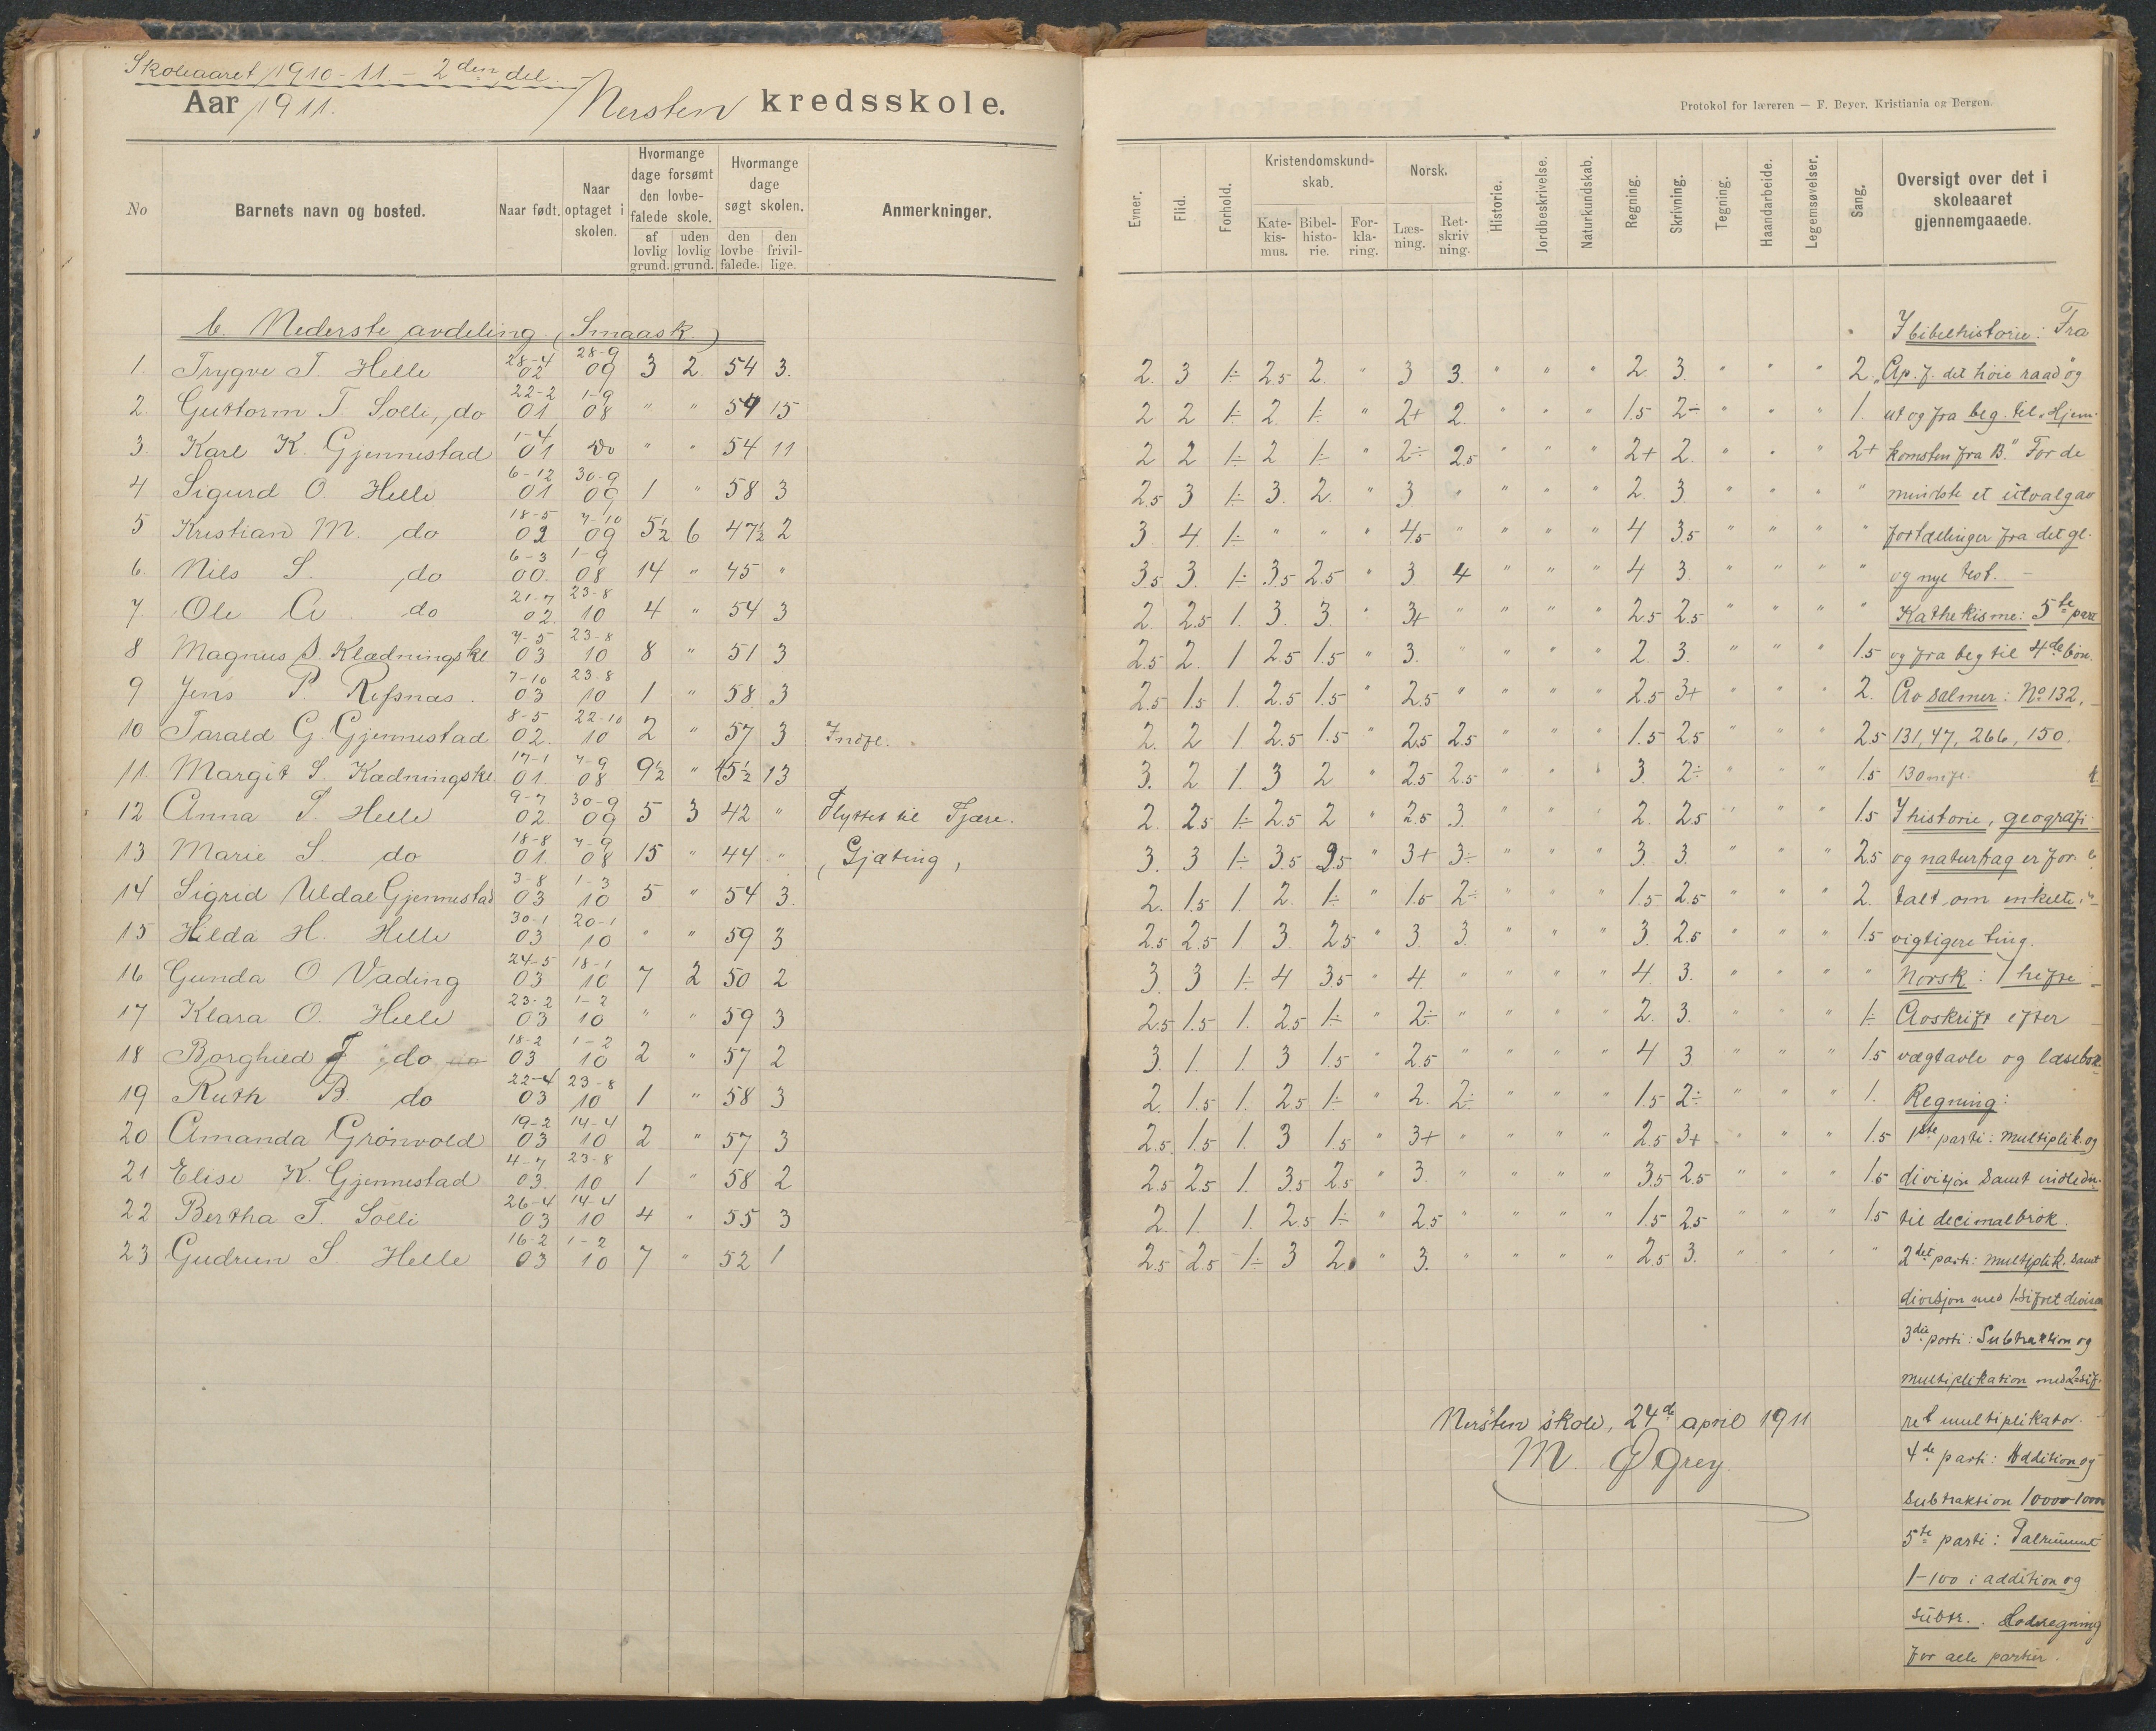 Skoleaaret 1910-11 - 2den del.
Aar 1911. Nersten kredsskole.
Protokol for læreren — F. Beyer, Kristiania og Bergen.
No Barnets navn og bosted. Naar født. Naar optaget i skolen. Hvormange dage forsømt den lovbefalede skole. af lovlig grund. uden lovlig grund. Hvormange dage søgt skolen. den lovbefalede. den frivillige. Anmerkninger.
Evner. Flid. Forhold. Kristendomskundskab. Katekismus. Bibelhistorie. Forklaring. Norsk. Læsning. Retskrivning. Historie. Jordbeskrivelse. Naturkundskab. Regning. Skrivning. Tegning. Haandarbeide. Legemsøvelser. Sang. Oversigt over det i skoleaaret gjennemgaaede.
b. Nederste avdeling (Smaask.)
1. Trygve T. Helle 28-4 02 28-9 09 3 2. 54 3.
2. Guttorm T. Solli, do 22-2 01 1-9 08 " " 59 15
3. Karl K. Gjennestad 1-4 01 do " " 54 11
4 Sigurd O. Helle 6-12 01 30-9 09 1 " 58 3
5 Kristian M. do 18-5 02 7-10 09 5½ 6 47½ 2
6. Nils S. do 6-3 00. 1-9 08 14 " 45 "
7 Ole A. do 21-7 02. 23-8 10 4 " 54 3
8 Magnus S. Klædningskl 7-5 03 23-8 10 8 " 51 3
9 Jens P. Refsnæs. 7-10 03 23-8 10 1 " 58 3
10 Tarald G Gjennestad 8-5 02. 22-10 10 2 " 57 3 Indfl.
11. Margit S. Kædningskl 17-1 01. 7-9 08 9½ " 45½ 13
12 Anna T. Helle 9-7 02. 30-9 09 5 3 42 " Flyttet til Tjøre.
13 Marie S. do 18-8 01. 7-9 08 15 " 44 " (Gjæting)
14 Sigrid Uldal Gjennestad 3-8 03 1-3 10 5 " 54 3.
15 Hilda H. Helle 30-1 03 20-1 10 " " 59 3
16 Gunda O Vading 24-5 03 18-1 10 7 2 50 2
17 Klara O. Helle 23-2 03 1-2 10 " " 59 3
18 Borghild T do 18-2 03 1-2 10 2 " 57 2
19 Ruth B. do 22-4 03 23-8 10 1 " 58 3
20 Amanda Grönvold 19-2 03 14-4 10 2 " 57 3
21 Elise K. Gjennestad 4-7 03. 23-8 10 1 " 58 2
22 Bertha T. Solli 26-4 03 14-4 10 4 " 55 3
23 Gudrun S. Helle 16-2 03 1-2 10 7 " 52 1
2. 3 1÷ 2.5 2. " 3 3. " " " 2. 3. " " " 2.
2 2 1÷ 2. 1÷ " 2+ 2. " " " 1.5 2÷ " " " 1.
2 2 1÷ 2 1÷ " 2÷ 2.5 " " " 2+ 2. " " " 2+
2.5 3 1÷ 3. 2. " 3 " " " " 2. 3. " " " "
3. 4. 1÷ " " " 4.5 " " " " 4 3.5 " " " "
3.5 3. 1÷ 3.5 2.5 " 3 4 " " " 4 3. " " " "
2. 2.5 1. 3. 3. " 3+ " " " " 2.5 2.5 " " " "
2.5 2. 1 2.5 1.5 " 3. " " " " 2. 3. " " " 1.5
2.5 1.5 1. 2.5 1.5 " 2.5 " " " " 2.5 3+ " " " 2.
2. 2 1 2.5 1.5 " 2.5 2.5 " " " 1.5 2.5 " " " 2.5
3. 2 1. 3 2 " 2.5 2.5 " " " 3. 2÷ " " " 1.5
2. 2.5 1÷ 2.5 2 " 2.5 3. " " " 2. 2.5 " " " 1.5
3. 3 1÷ 3.5 2.5 " 3+ 3÷ " " " 3. 3. " " " 2.5
2. 1.5 1. 2. 1÷ " 1.5 2÷ " " " 1.5 2.5 " " " 2.
2.5 2.5 1 3 2.5 " 3. 3. " " " 3. 2.5 " " " 1.5
3. 3 1÷ 4 3.5 " 4. " " " " 4. 3. " " " "
2.5 1.5 1. 2.5 1÷ " 2÷ " " " " 2. 3. " " " 1÷
3. 1. 1. 3 1.5 " 2.5 " " " " 4 3 " " " 1.5
2. 1.5 1. 2.5 1÷ " 2. 2÷ " " " 1.5 2÷ " " " 1.
2.5 1.5 1. 3 1.5 " 3+ " " " " 2.5 3+ " " " 1.5
2.5 2.5 1. 3.5 2.5 " 3. " " " " 3.5 2.5 " " " 1.5
2. 1. 1. 2.5 1÷ " 2.5 " " " " 1.5 2.5 " " " 1.5
2.5 2.5 1÷ 3 2. " 3. " " " " 2.5 3. " " " "
I bibelhistorie: Fra
"Ap. f. det høie raad" og
ut og fra beg. til "Hjem-
komsten fra B." For de
mindste et utvalg av
fortællinger fra det gl.
og nye test. -
Kathekisme: 5te part
og fra beg til 4de bøn.
Av salmer: No 132,
131, 47, 266, 150.
I historie, geografi
og naturfag er for-
talt om enkelte
vigtigere ting.
Norsk: I hefte
Avskrift efter
vægtavle og læsebok.
Regning:
1ste parti: Multiplik. og
division samt indledn.
til decimalbrøk.
2det parti: Multiplik. samt
divisjon med 1sifret divisor
3die parti: Subtraktion og
multiplikation med 2sif-
ret multiplikator.
4de parti: Addition og
subtraktion 1000-1000
5te parti: Talrummet
1-100 i addition og
subtr.. Hoderegning
for alle partier.
Nersten skole, 24de april 1911
M. Øgrey.